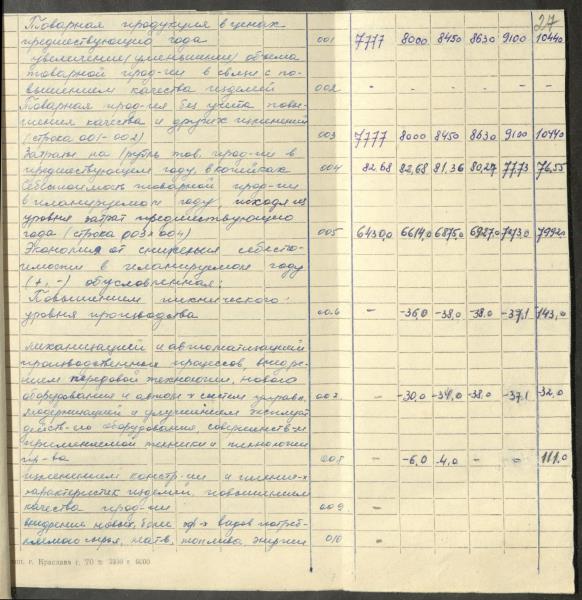 27
Товарная продукция в ценах
предшествующего года 001 7777 8000 8450 8630 9100 10440
увеличение (уменьшение) объема
товарной прод-ии в связи с по-
вышением качества изделий 002 - - - - - -
Товарная прод-ия без учета повы-
шения качества и других изменений
(строка 001-002) 003 7777 8000 8450 8630 9100 10440
Затраты на 1 рубль тов. прод-ии в
предшествующем году, в копейках 004 82.68 82,68 81,36 80,27 77,73 76,55
Себестоимость товарной прод-ии
в планируемом году, исходя из
уровня затрат предшествующего
года (строка 003×004) 005 6430,0 6614,0 6875,0 6927,0 7073,0 7992,0
Экономия от снижения себесто-
имости в планируемом году
(+,-) обусловленная:
Повышением технического
уровня производства 006 - -36,0 -38,0 -38,0 -37,1 143,0
механизацией и автоматизацией
производственных процессов, внедре-
нием передовой технологии, нового
оборудования и систем управл. 007 - -30,0 -34,0 -38,0 -37,1 -32,0
модернизацией и улучшением эксплуат.
оборудования, совершенств-м
применяемой техники и технологии
пр-ва 008 - -6,0 4,0 - - 111,0
изменением констр-ии и технич-х
характеристик изделий, повышением
качества прод-ии 009 -
внедрение новых, более эф-х видов потреб-
ляемого сырья, мат-в, топлива, энергии 010 -
тип. г. Краслава г. 70 з. 6000